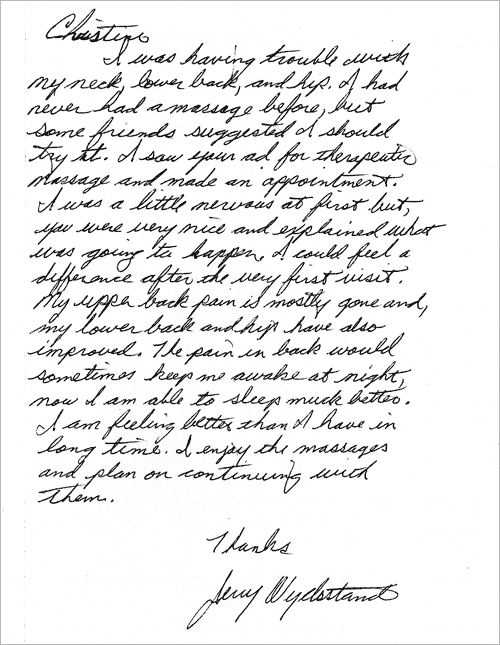 Christine
I was having trouble with
my neck, lower back, and hip. I had
never had a massage before, but
some friends suggested I should
try it. I saw your ad for therapeutic
massage and made an appointment.
I was a little nervous at first but,
you were very nice and explained what
was going to happen. I could feel a
difference after the very first visit.
My upper back pain is mostly gone and,
my lower back and hip have also
improved. The pain in back would
sometimes keep me awake at night,
now I am able to sleep much better.
I am feeling better than I have in
long time. I enjoy the massages
and plan on continuing with
them.
Thanks
Jerry